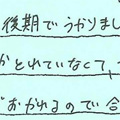 後期でうかりまし
かとれていなくて、
おかれるので合